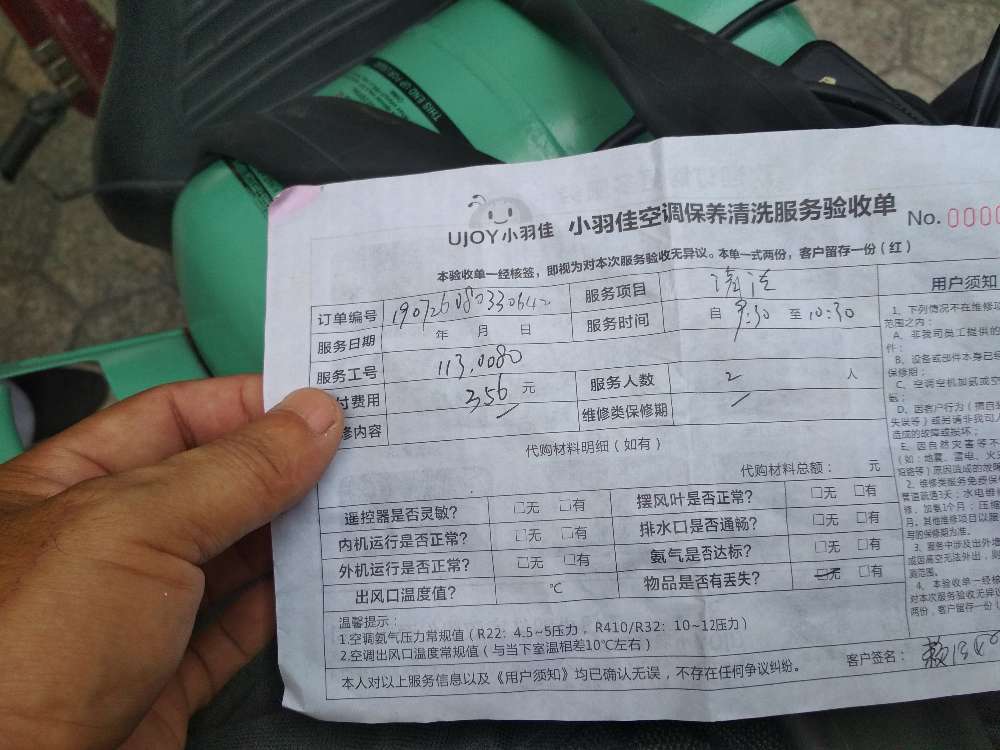 THIS END UP FOR
UJOY小羽佳 小羽佳空调保养清洗服务验收单 No. 0000
本验收单一经核签，即视为对本次服务验收无异议。本单一式两份，客户留存一份（红）
订单编号 190726080330642 服务项目 清洗
服务日期 年 月 日 服务时间 自 9:30 至 10:30
服务工号 113.0080
付费用 356 元 服务人数 2 人
修内容 维修类保修期
代购材料明细（如有）
代购材料总额： 元
遥控器是否灵敏？ □无 □有 摆风叶是否正常？ □无 □有
内机运行是否正常？ □无 □有 排水口是否通畅？ □无 □有
外机运行是否正常？ □无 □有 氨气是否达标？ □无 □有
出风口温度值？ ℃ 物品是否有丢失？ □无 □有
温馨提示：
1.空调氨气压力常规值（R22：4.5~5压力，R410/R32：10~12压力）
2.空调出风口温度常规值（与当下室温相差10℃左右）
客户签名：
本人对以上服务信息以及《用户须知》均已确认无误，不存在任何争议纠纷。
用户须知
1、下列情况不在维修项
范围之内：
A、非我司员工提供的
件；
B、设备或部件本身已经
保修期；
C、空调全机加氨或空
氨；
D、因客户行为（擅自
失误等）或另请非我司人
造成的故障或损坏；
E、因自然灾害等不
（如：地震、雷电、火
短路等）原因造成的故障
2、维修类服务免费保
管道疏通3天；水电维
修、加氨1个月；压缩
月。其他维修项目以服
写的保修期为准。
3、服务中涉及出外墙
或因高空无法外出，
测范围。
4、本验收单一经核
对本次服务验收无异议
两份，客户留存一份